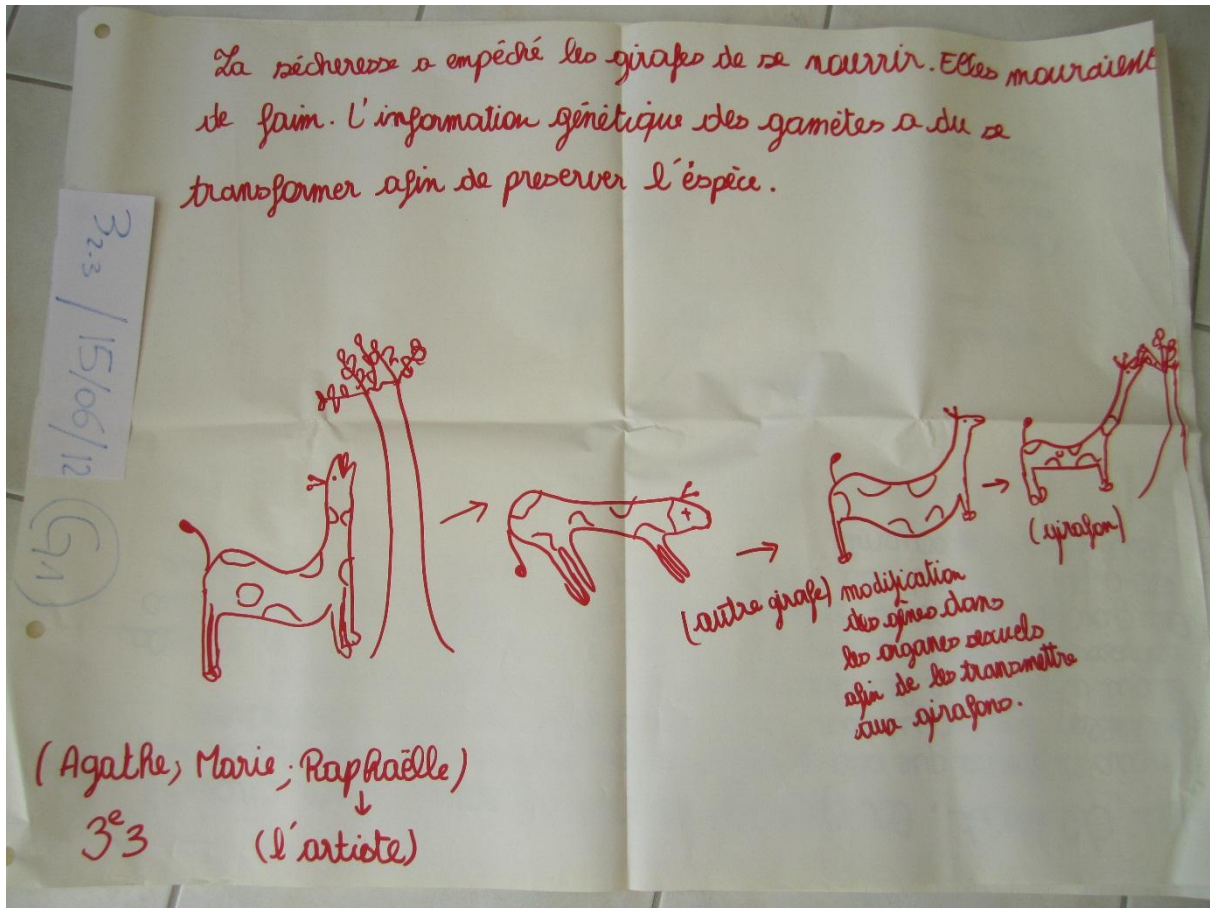 La sécheresse a empéché les girafes de se nourrir. Elles mouraient
de faim. L'information génétique des gamètes a du se
transformer afin de preserver l'éspèce.
3 2.3 / 15/06/12
G1
(autre girafe) modification
des gènes dans
les organes sexuels
afin de les transmettre
aux girafons.
(girafon)
(Agathe, Marie; Raphaëlle)
3e3
(l'artiste)